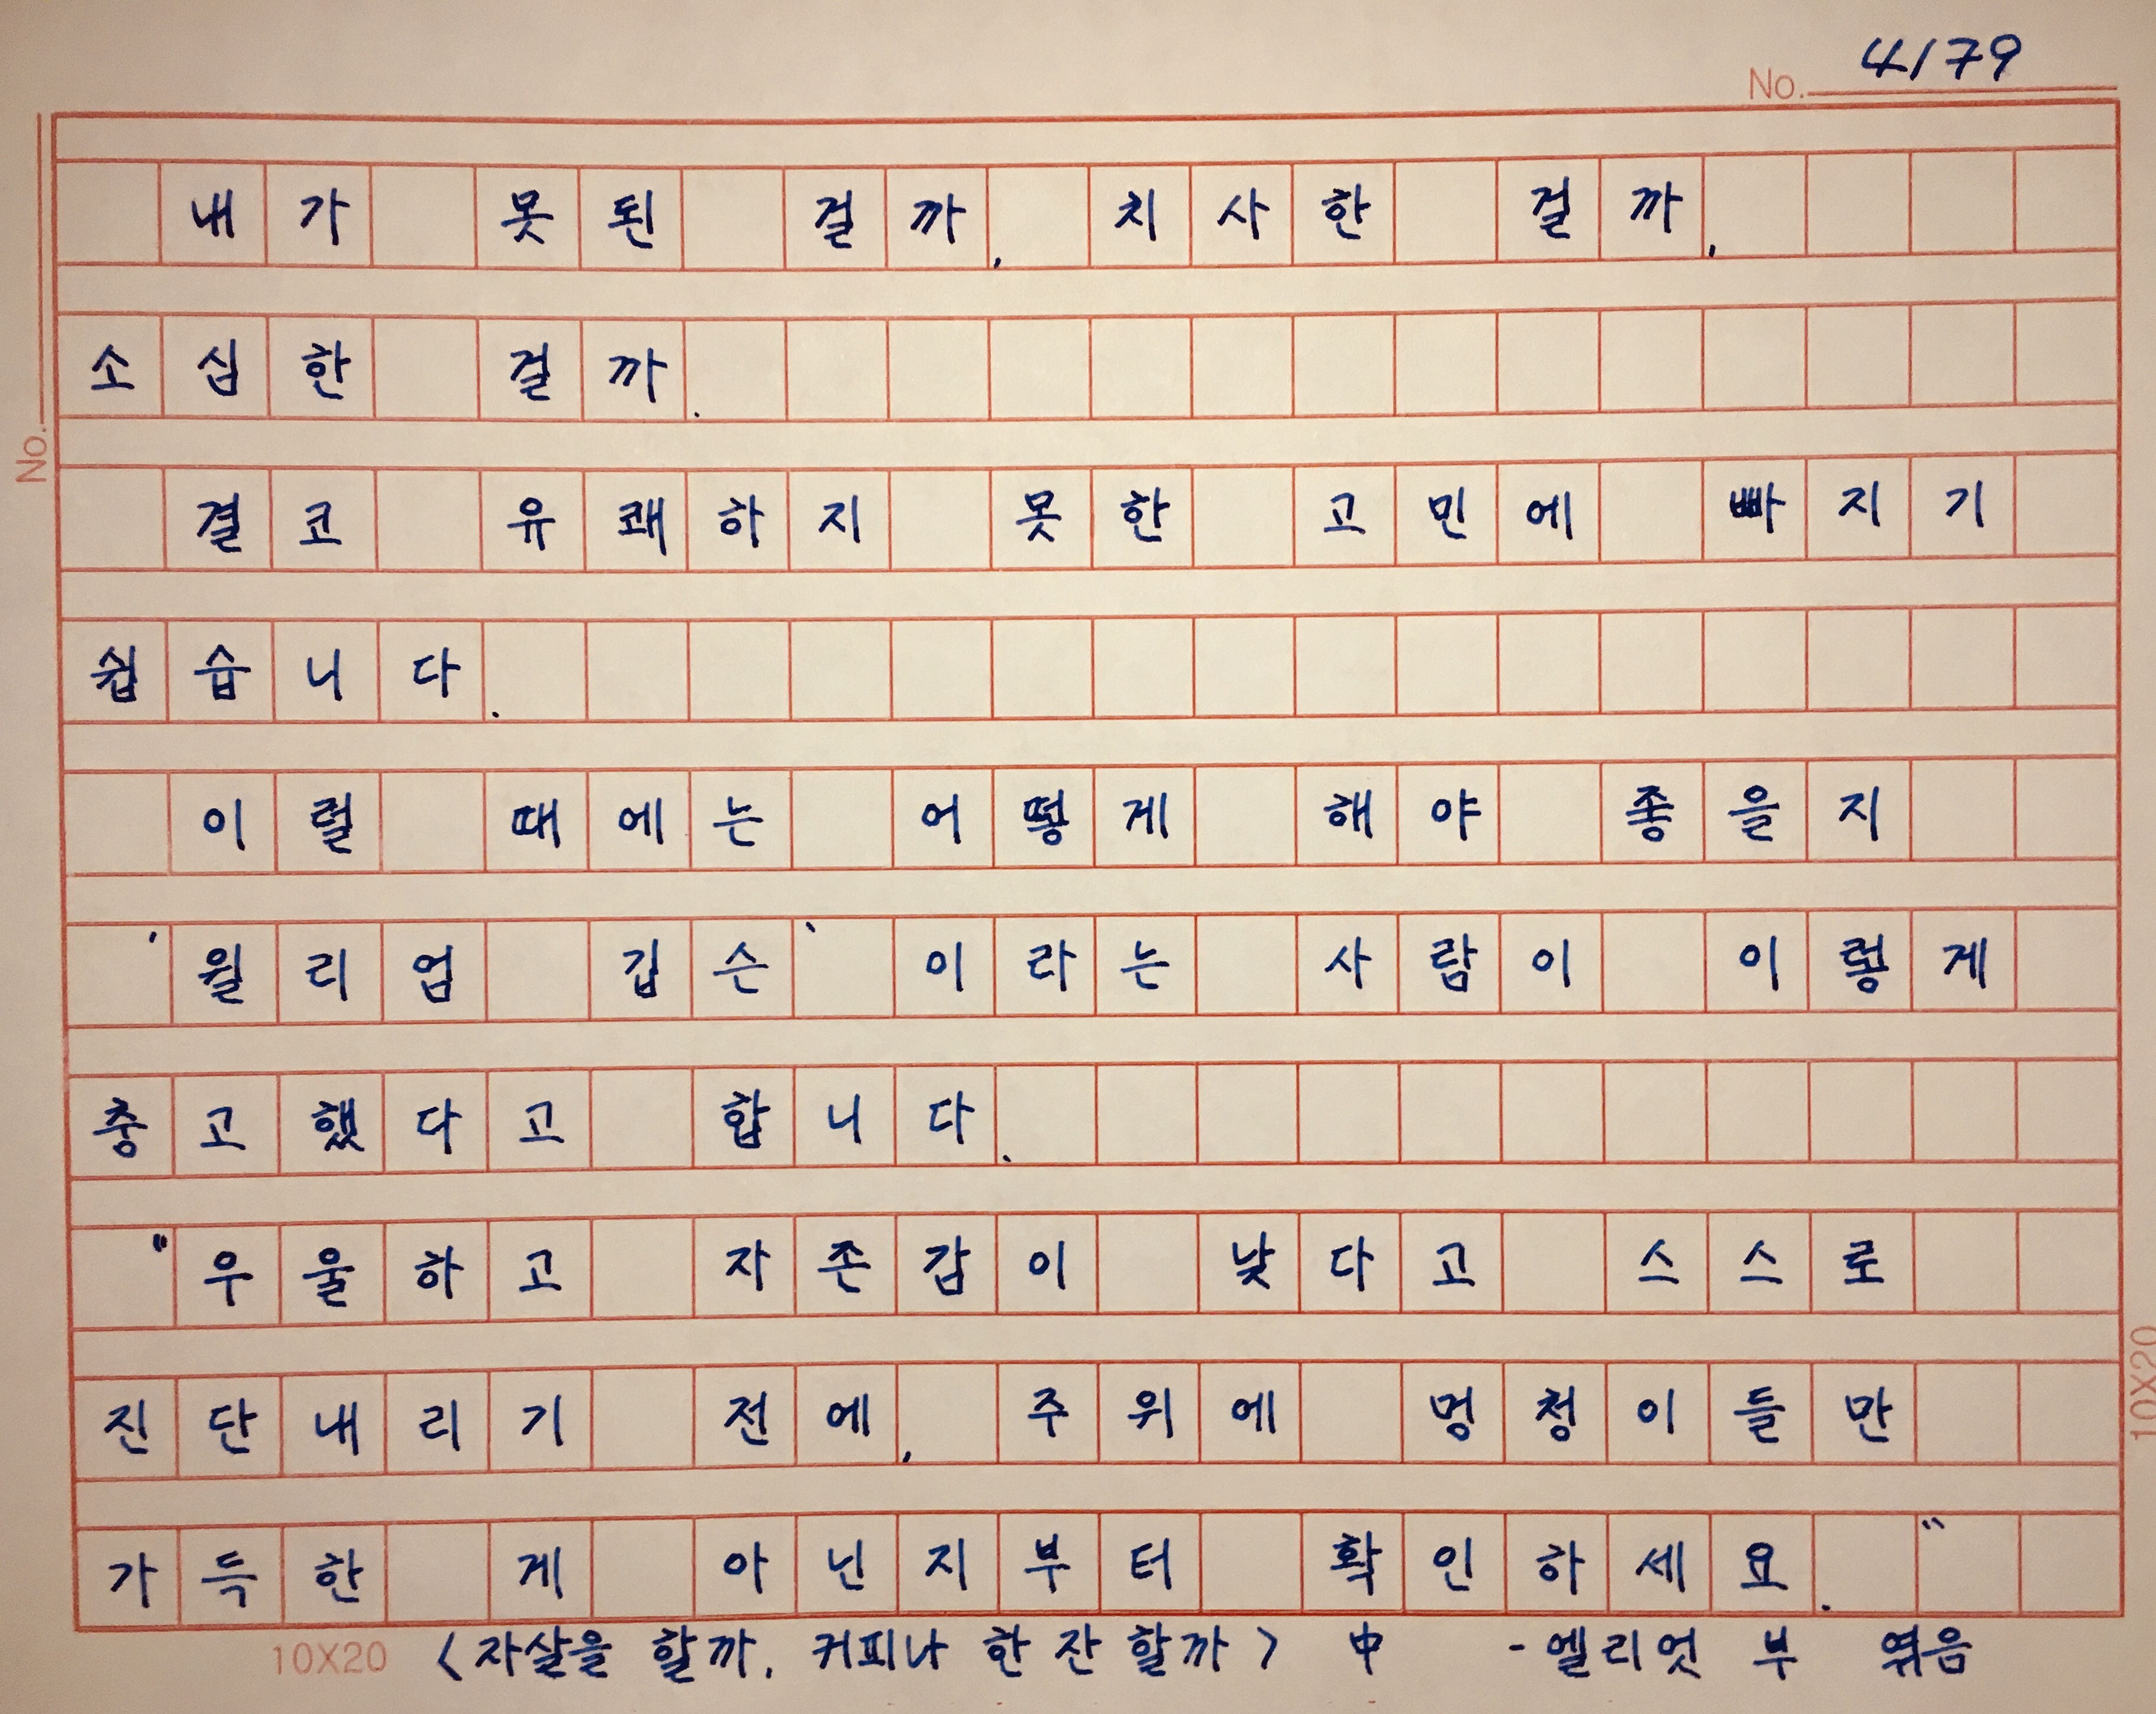 No. 4179
내가 못된 걸까, 치사한 걸까,
소심한 걸까.
결코 유쾌하지 못한 고민에 빠지기
쉽습니다.
이럴 때에는 어떻게 해야 좋을지
'윌리엄 깁슨'이라는 사람이 이렇게
충고했다고 합니다.
"우울하고 자존감이 낮다고 스스로
진단내리기 전에, 주위에 멍청이들만
가득한 게 아닌지부터 확인하세요."
10X20 <자살을 할까, 커피나 한 잔 할까> 中 -엘리엇 부 엮음
No.
10X20